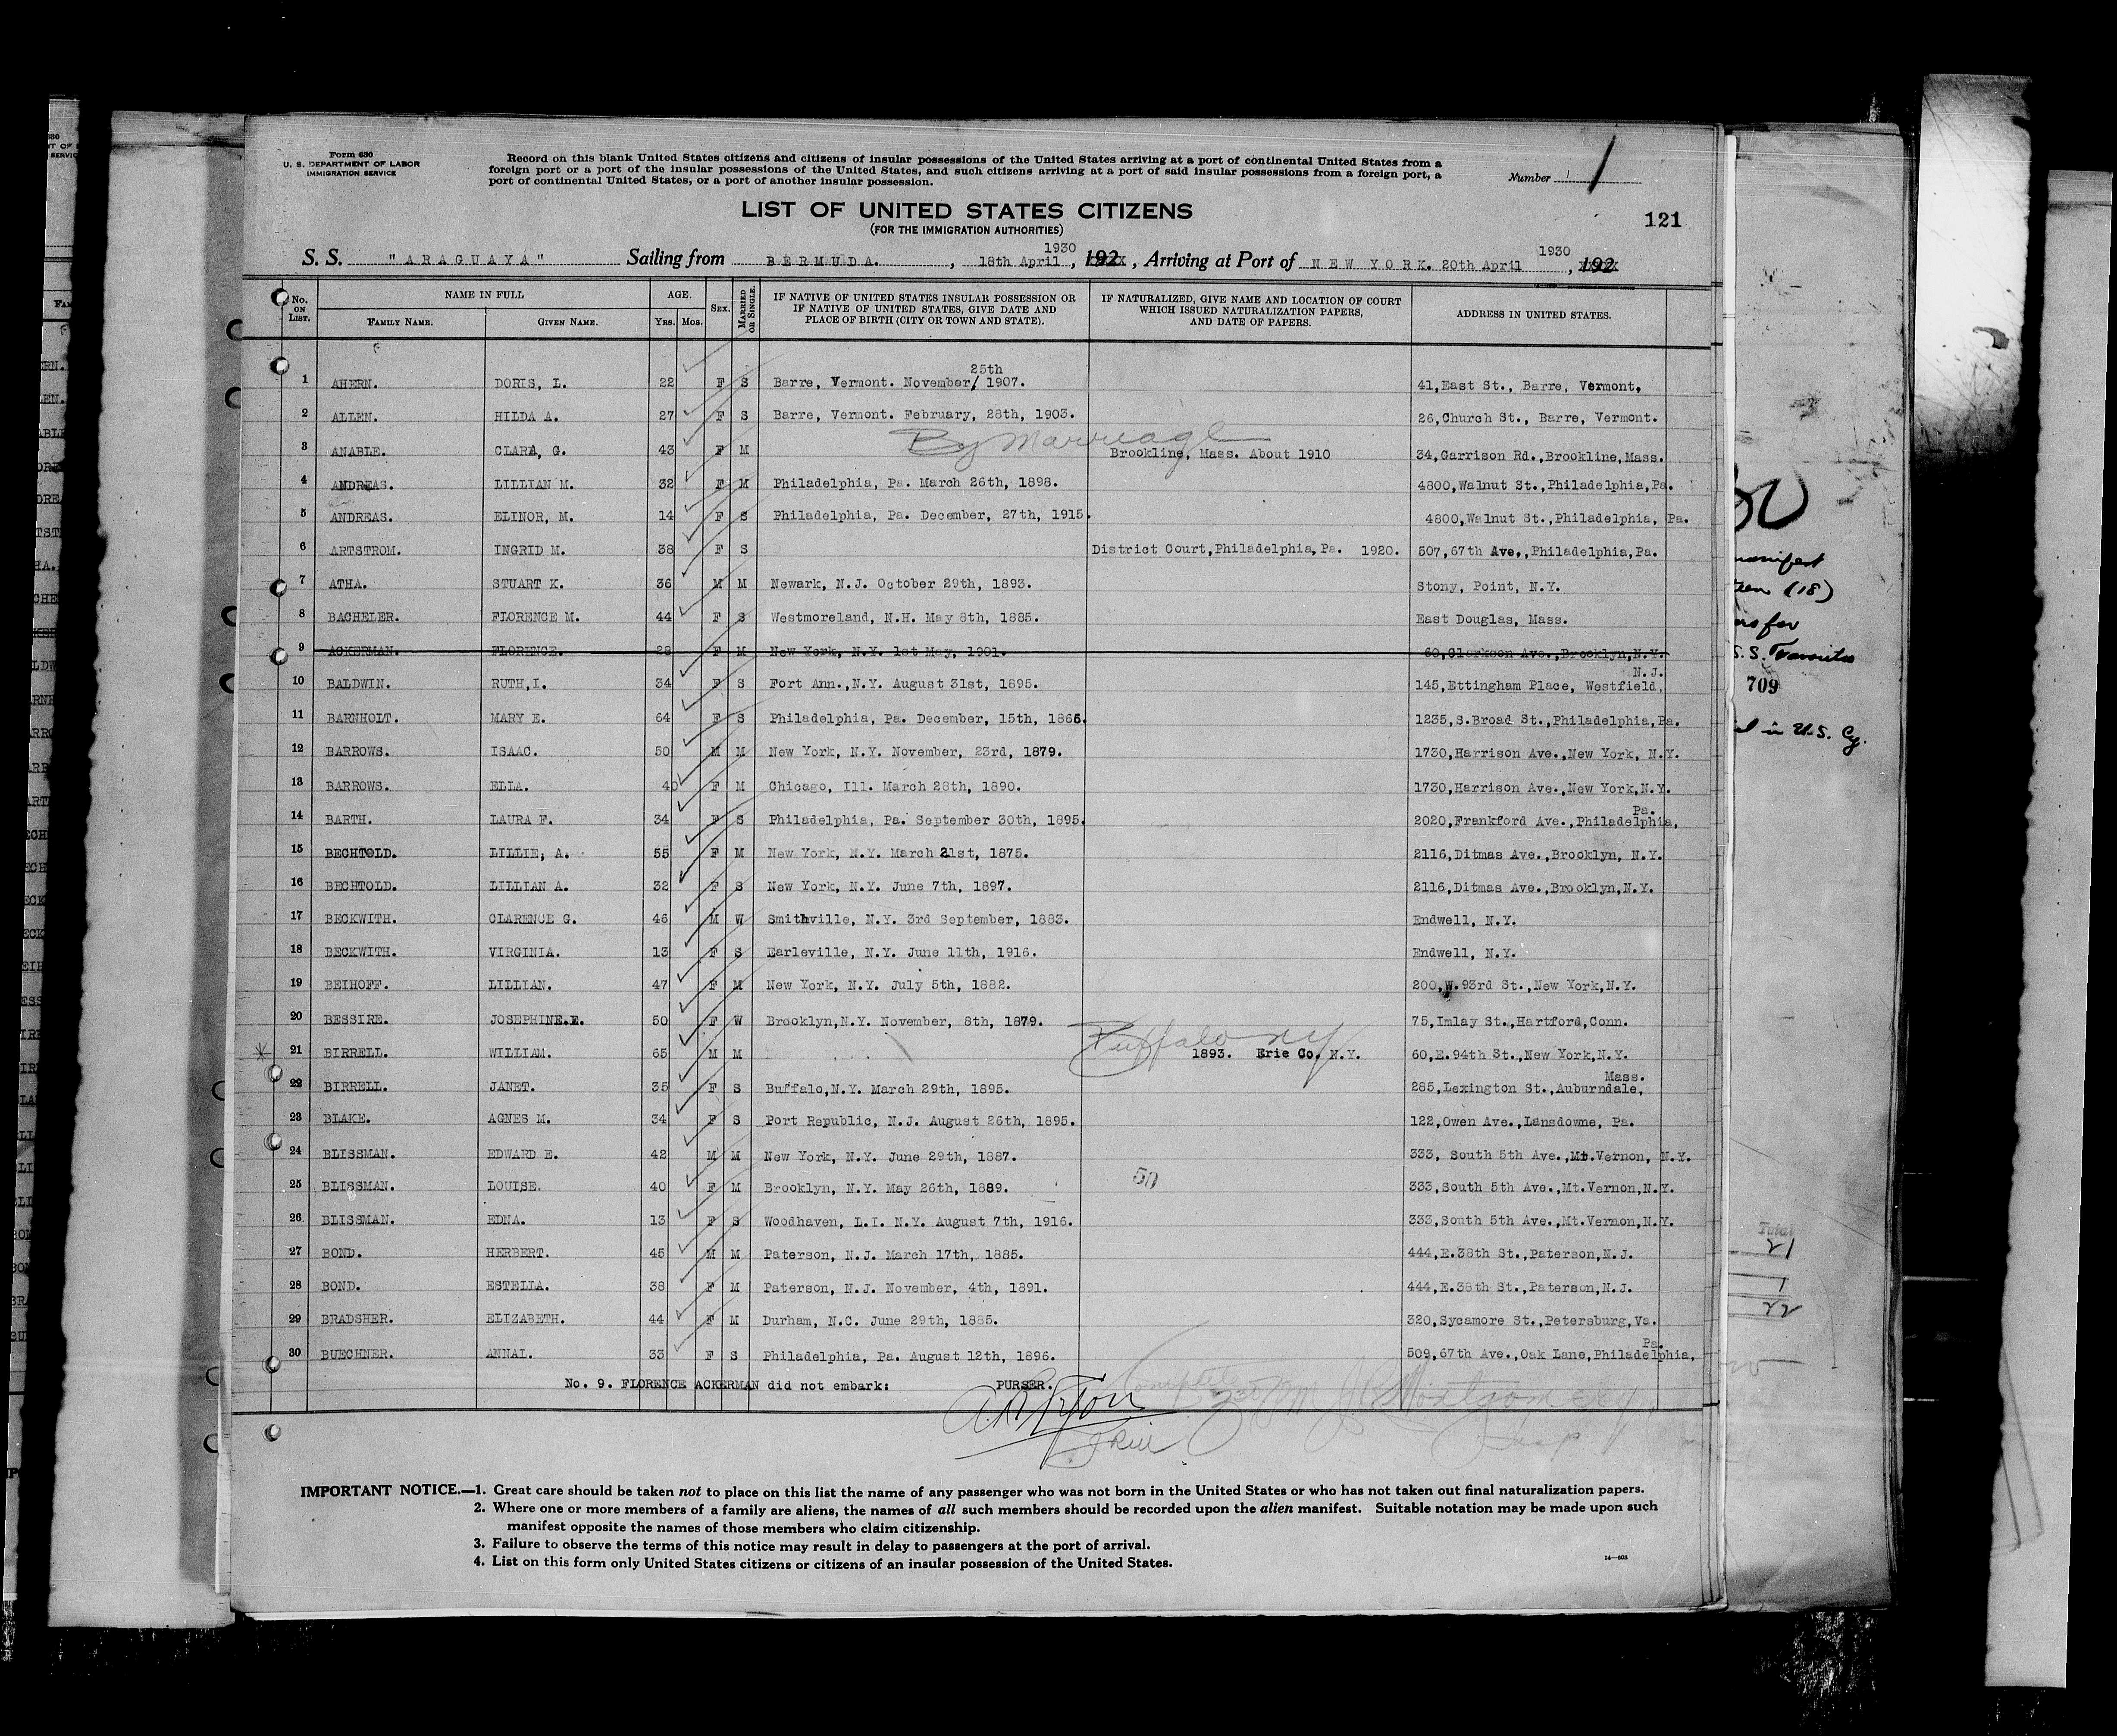 Form 630
U. S. DEPARTMENT OF LABOR
IMMIGRATION SERVICE
Record on this blank United States citizens and citizens of insular possessions of the United States arriving at a port of continental United States from a
foreign port or a port of the insular possessions of the United States, and such citizens arriving at a port of said insular possessions from a foreign port, a
port of continental United States, or a port of another insular possession.
Number 1
LIST OF UNITED STATES CITIZENS
(FOR THE IMMIGRATION AUTHORITIES)
121
S. S. "ARAGUAYA" Sailing from BERMUDA. , 18th April 1930 , 192 , Arriving at Port of NEW YORK. 20th April 1930 , 192
No. ON LIST. NAME IN FULL FAMILY NAME. GIVEN NAME. AGE. Yrs. Mos. SEX. MARRIED OR SINGLE. IF NATIVE OF UNITED STATES INSULAR POSSESSION OR IF NATIVE OF UNITED STATES, GIVE DATE AND PLACE OF BIRTH (CITY OR TOWN AND STATE). IF NATURALIZED, GIVE NAME AND LOCATION OF COURT WHICH ISSUED NATURALIZATION PAPERS, AND DATE OF PAPERS. ADDRESS IN UNITED STATES.
1 AHERN. DORIS, L. 22 F S Barre, Vermont. November/ 25th 1907. 41,East St., Barre, Vermont.
2 ALLEN. HILDA A. 27 F S Barre, Vermont. February, 28th, 1903. 26,Church St., Barre, Vermont.
3 ANABLE. CLARA, G. 43 F M By Marreage Brookline, Mass. About 1910 34,Garrison Rd.,Brookline,Mass.
4 ANDREAS. LILLIAN M. 32 F M Philadelphia, Pa. March 26th, 1898. 4800,Walnut St.,Philadelphia,Pa.
5 ANDREAS. ELINOR, M. 14 F S Philadelphia, Pa. December, 27th, 1915. 4800,Walnut St.,Philadelphia, Pa.
6 ARTSTROM. INGRID M. 38 F S District Court,Philadelphia,Pa. 1920. 507,67th Ave.,Philadelphia,Pa.
7 ATHA. STUART K. 36 M M Newark, N.J. October 29th, 1893. Stony, Point, N.Y.
8 BACHELER. FLORENCE M. 44 F S Westmoreland, N.H. May 8th, 1885. East Douglas, Mass.
9 ACKERMAN. FLORENCE. 28 F M New York, N.Y. 1st May, 1901. 60,Clarkson Ave.,Brooklyn,N.Y.
10 BALDWIN. RUTH,I. 34 F S Fort Ann.,N.Y. August 31st, 1895. 145,Ettingham Place, Westfield, N.J.
11 BARNHOLT. MARY E. 64 F S Philadelphia, Pa. December, 15th, 1865. 1235,S.Broad St.,Philadelphia,Pa.
12 BARROWS. ISAAC. 50 M M New York, N.Y. November, 23rd, 1879. 1730,Harrison Ave.,New York, N.Y.
13 BARROWS. ELLA. 40 F M Chicago, Ill. March 28th, 1890. 1730,Harrison Ave.,New York,N.Y.
14 BARTH. LAURA F. 34 F S Philadelphia, Pa. September 30th, 1895. 2020,Frankford Ave.,Philadelphia, Pa.
15 BECHTOLD. LILLIE, A. 55 F M New York, N.Y. March 21st, 1875. 2116,Ditmas Ave.,Brooklyn, N.Y.
16 BECHTOLD. LILLIAN A. 32 F S New York, N.Y. June 7th, 1897. 2116,Ditmas Ave.,Brooklyn,N.Y.
17 BECKWITH. CLARENCE G. 46 M W Smithville, N.Y. 3rd September, 1883. Endwell, N.Y.
18 BECKWITH. VIRGINIA. 13 F S Earleville, N.Y. June 11th, 1916. Endwell, N.Y.
19 BEIHOFF. LILLIAN. 47 F M New York, N.Y. July 5th, 1882. 200,W.93rd St.,New York,N.Y.
20 BESSIRE. JOSEPHINE.E. 50 F W Brooklyn,N.Y. November, 8th, 1879. 75,Imlay St.,Hartford,Conn.
21 BIRRELL. WILLIAM. 65 M M Buffalo NY 1893. Erie Co. N.Y. 60,E.94th St.,New York,N.Y.
22 BIRRELL. JANET. 35 F S Buffalo,N.Y. March 29th, 1895. 285,Lexington St.,Auburndale, Mass.
23 BLAKE. AGNES M. 34 F S Port Republic, N.J. August 26th, 1895. 122,Owen Ave.,Lansdowne, Pa.
24 BLISSMAN. EDWARD E. 42 M M New York, N.Y. June 29th, 1887. 333, South 5th Ave.,Mt.Vernon, N.Y.
25 BLISSMAN. LOUISE. 40 F M Brooklyn, N.Y. May 26th, 1889. 50 333,South 5th Ave.,Mt.Vernon,N.Y.
26 BLISSMAN. EDNA. 13 F S Woodhaven, L.I. N.Y. August 7th, 1916. 333,South 5th Ave.,Mt.Vernon,N.Y.
27 BOND. HERBERT. 45 M M Paterson, N.J. March 17th, 1885. 444,E.38th St.,Paterson,N.J.
28 BOND. ESTELLA. 38 F M Paterson, N.J. November, 4th, 1891. 444,E.38th St.,Paterson,N.J.
29 BRADSHER. ELIZABETH. 44 F M Durham, N.C. June 29th, 1885. 320,Sycamore St.,Petersburg,Va.
30 BUECHNER. ANNAL. 33 F S Philadelphia, Pa. August 12th, 1896. 509,67th Ave.,Oak Lane,Philadelphia, Pa.
No. 9. FLORENCE ACKERMAN did not embark: PURSER.
IMPORTANT NOTICE.—1. Great care should be taken not to place on this list the name of any passenger who was not born in the United States or who has not taken out final naturalization papers.
2. Where one or more members of a family are aliens, the names of all such members should be recorded upon the alien manifest. Suitable notation may be made upon such
manifest opposite the names of those members who claim citizenship.
3. Failure to observe the terms of this notice may result in delay to passengers at the port of arrival.
4. List on this form only United States citizens or citizens of an insular possession of the United States.
manifest
(18)
709
in U.S. Cy.
Total
21
1
22